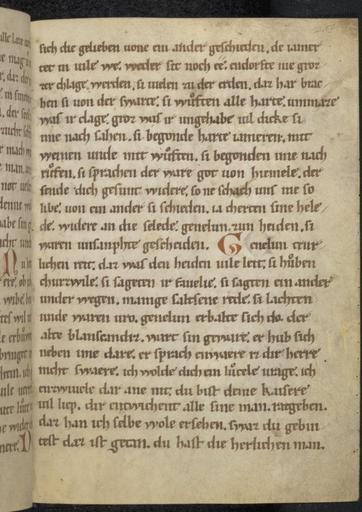 sich die gelieben uone ein ander geschieden. de iamer
tet in uile we. weder sit noch ee. endorfte nie gror
rer chlage werden. si uielen zu der erden. dar har brac
hen si uon der swarte. si wůften alle harte. ummare
was ir clage. gror was ir ungehabe uil dicke si
ime nach sahen. si begonde harte iameren. mit
weinen unde mit wůften. si begonden ime nach
růfen. si sprachen der ware got uon hiemele. der
sende dich gesunt widere. so ne schach uns nie so
libe. uon ein ander si schieden. ia cherten sine hele
de. widere an die selede. genelun. zun heiden. si
waren unsamphte gescheiden. Genelun trur
lichen reit. daz was den heiden uile leit. si hůben
churzwile. si sageten ir fauelie. si sagten ein ander
under wegen. manige saltsene rede. si lachten
unde waren uro. genelun erbalte sich do. der
alte blanscandiz. wart sin geware. er hub sich
neben ime dare. er sprach enwaere iz die herre
nicht swaere. ich wolde dich ein lůtzele urage. ich
entwiuele dar ane nit. du bist deme kaisere
uil liep. dir entwichent alle sine man. ratgeben.
daz han ich selbe wole ersehen. swaz du gebiu
test daz ist getan. du hast die herlichen man.